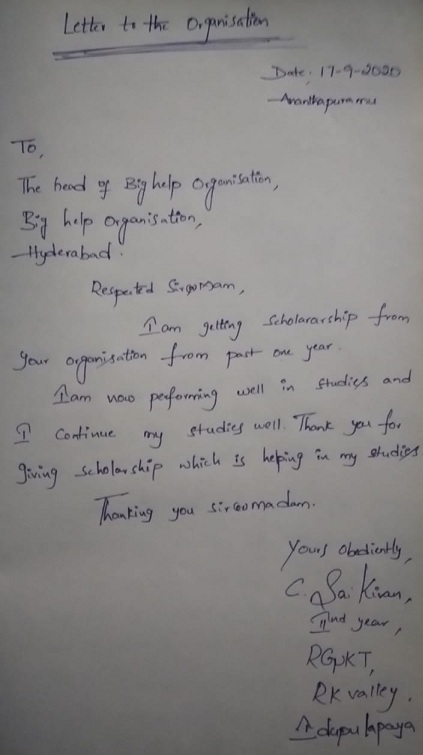 Letter to the Organisation
Date: 17-9-2020
Ananthapuramu
To,
The head of Big help Organisation,
Big help Organisation,
Hyderabad.
Respected Sir
I am getting Scholararship from
your organisation from past one year.
I am now performing well in studies and
I Continue my studies well. Thank you for
giving scholarship which is helping in my studies
Thanking you sir
Yours Obediently,
C. Sai Kiran,
IInd year,
RGUKT,
RK valley.
Idupulapaya